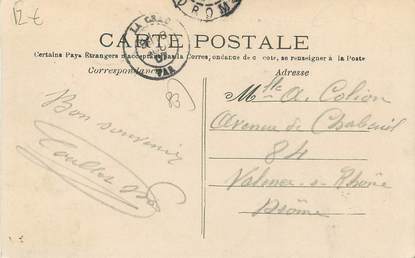 12 €
DROME
CARTE POSTALE
Certains Pays Étrangers n'acceptant pas la Correspondance de ce côté, se renseigner à la Poste
Correspondance
Adresse
LA CRAU
VAR
83
Bon souvenir
Mlle A. Colion
Avenue de Chabeuil
84
Valence-s-Rhône
Drôme